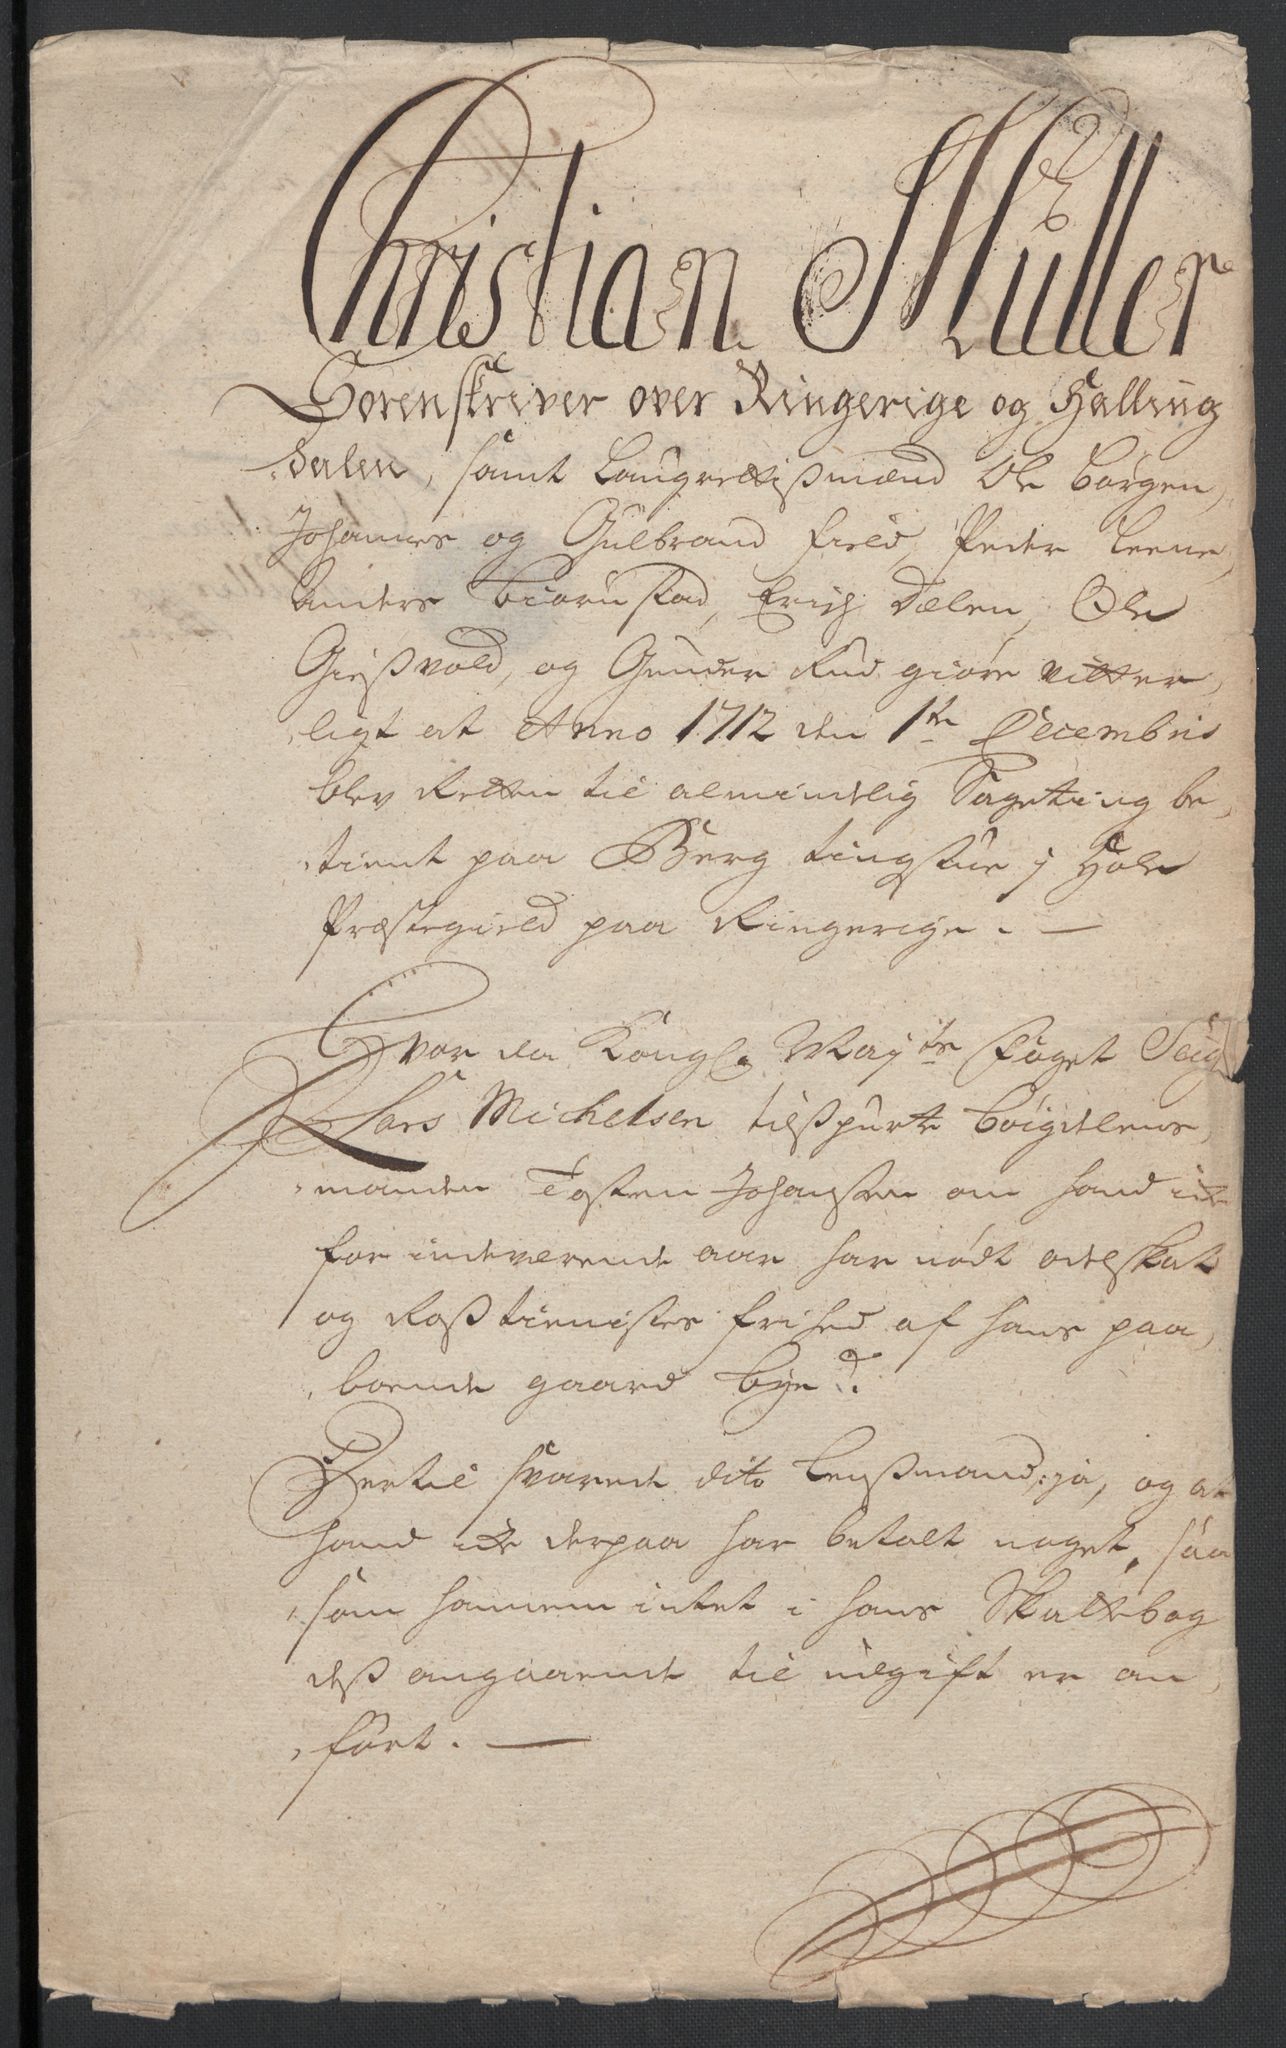 Christian Müller
Sorenskriver over Ringerige og Halling
dalen, samt Laugrettißmænd Ole Børgen,
Johannes og Gulbrand Field, Peder Leene,
Anders Biørnstad, Erich Dælen, Ole
Gießvold, og Gunder Rud giøre vitter,
ligt at Anno 1712 den 1te Decembris
blev Retten til almindelig Sageting be,
tient paa Berg tingstue j Hole
Præstegield paa Ringerige. —
Hvor da Kongl. Mayts Foget Seigr
Lars Michelsen tilspurte bøigdelens,
manden Tosten Johansen om hand icke
for indeværende aar har nødt odelskat
og Roßtienistes frihed af hans paa,
boende gaard Bye?
Hertil svarede dito Lensmand, ja, og at
hand icke derpaa har betalt noget, saa
som hannem intet i hans Skattebog
deß angaaende til udgift er an
ført. —